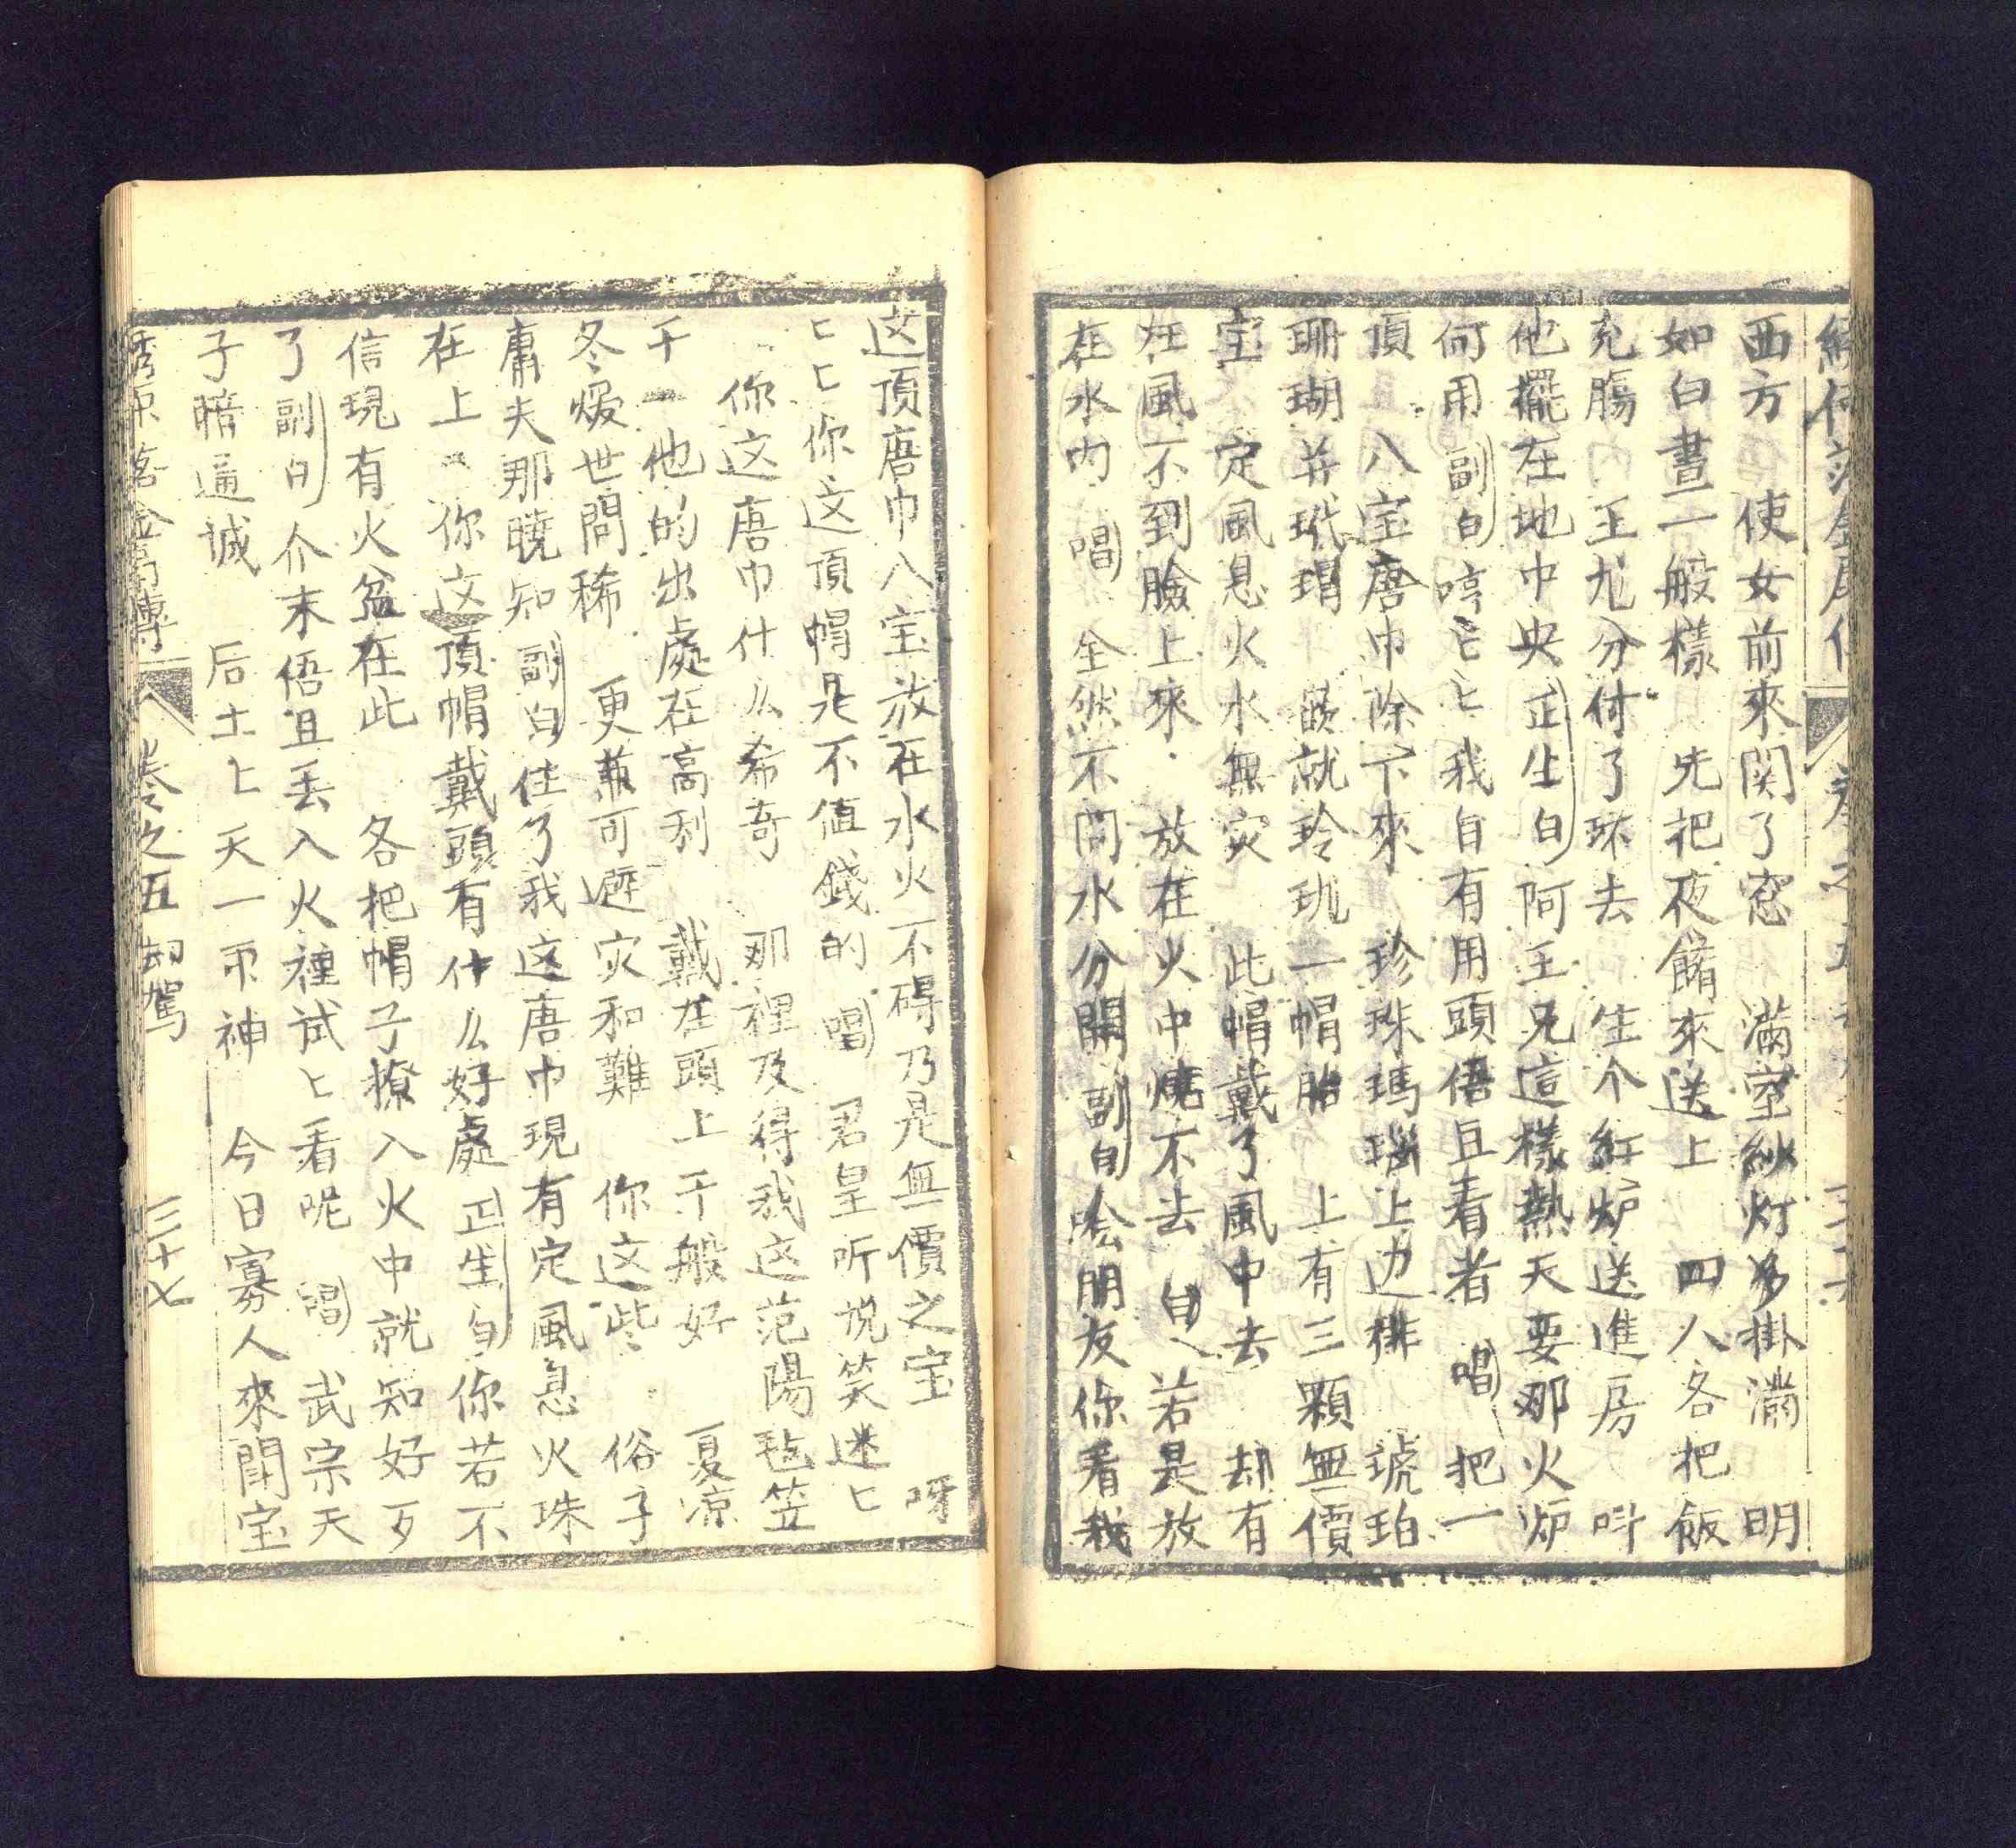 西方　使女前來関了窓　滿室紗灯多掛滿　明
如白晝一般樣　先把夜餚來送上　四人各把飯
充膓　王尤分付了环去　生个紅炉送進房　呌
他擺在地中央　正生白　阿王兄這樣熱天要那火炉
何用　副白　哼匕匕我自有用頭俉且看者　唱　把一
頂　八宝唐巾除下來　珍珠瑪瑙上边排　琥珀
珊瑚并玳瑁　嵌就玲玑一帽胎　上有三顆無價
宝　定風息火水無灾　此帽戴了風中去　却有
狂風不到臉上來　放在火中燒不去　白　若是放
在水內　唱　全然不同水分開　副白　哙朋友你看我
这頂唐巾八宝放在水火不碍乃是無價之宝　呀
匕匕你这頂帽是不值錢的　唱　君皇听說笑迷匕
你这唐巾什么希奇　那裡及得我这范陽毡笠
千一他的出處在高利　戴在頭上千般好　夏凉
冬煖世間稀　更兼可避灾和難　你这些　俗子
庸夫那曉知　副白　住了我这唐巾現有定風息火珠
在上　你这頂帽戴頭有什么好處　正生白　你若不
信現有火盆在此　各把帽子撩入火中就知好歹
了　副白　介末俉且丢入火種試匕看呢　唱　武宗天
子暗通誠　后土上天一眾神　今日寡人來鬪宝
卷之五　刧駕　三十七